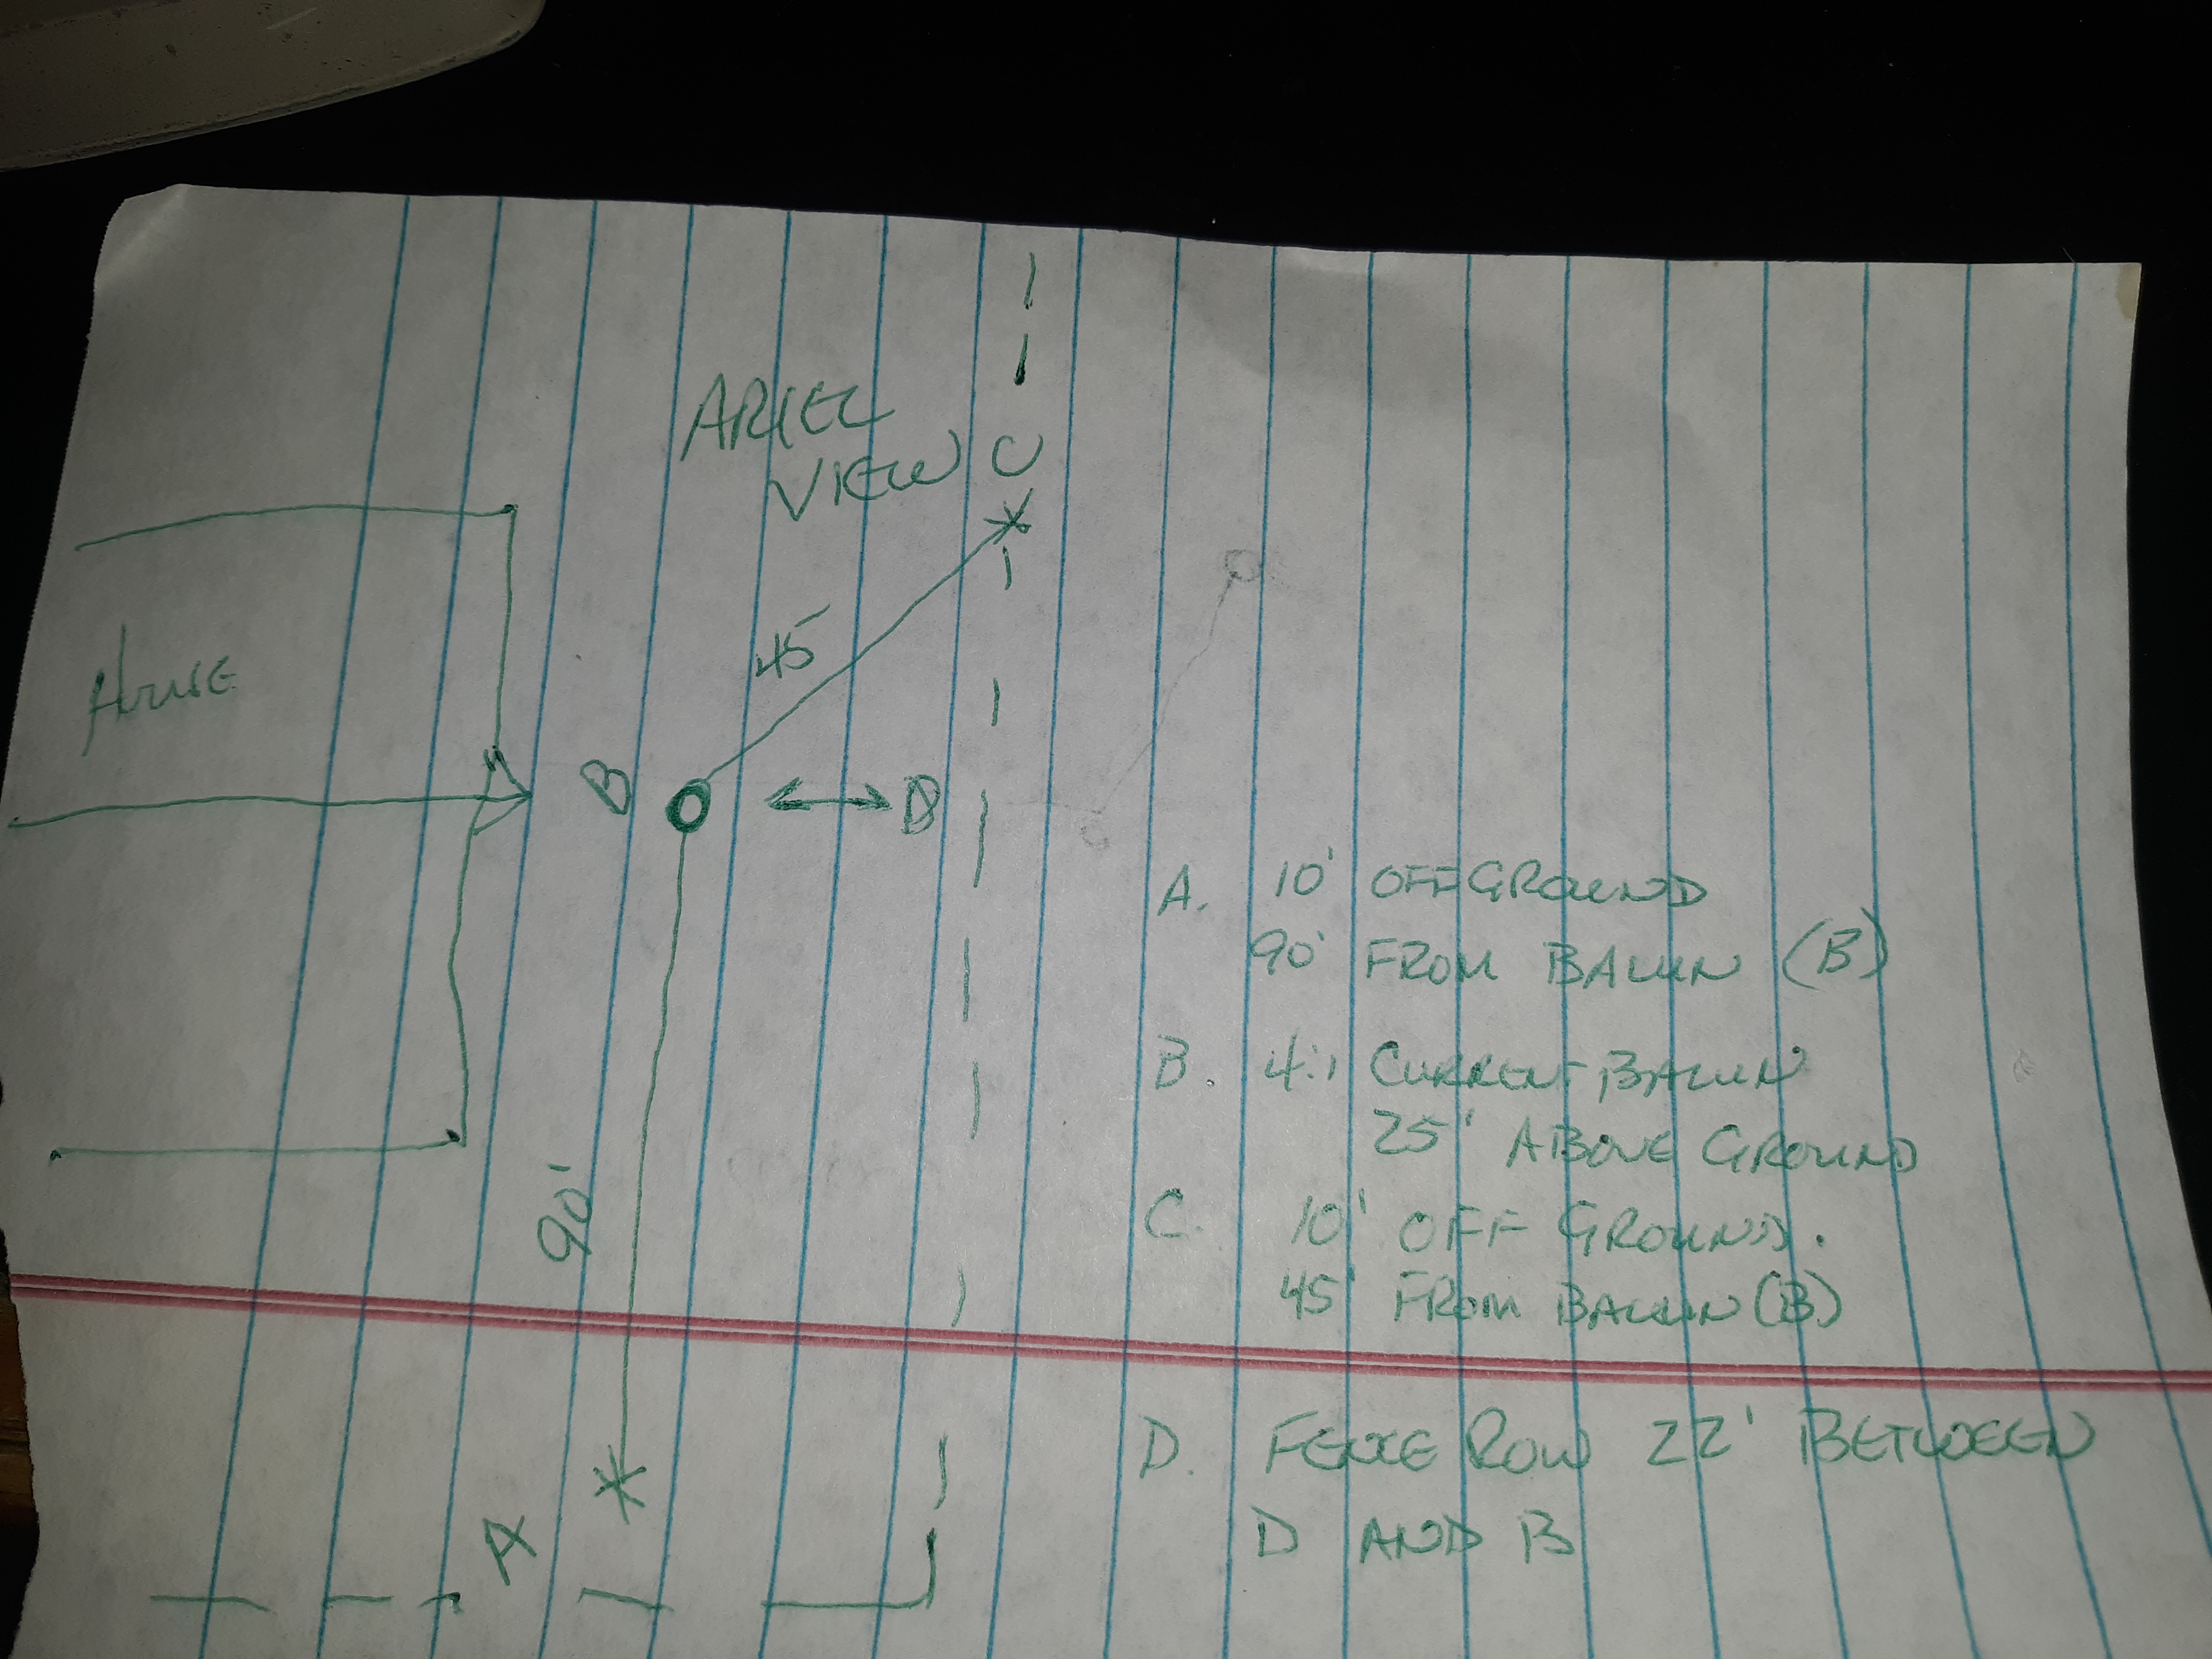 ARIEL
VIEW
C
HOUSE
45'
B
D
90'
A
A. 10' OFF GROUND
90' FROM BALUN (B)
B. 4:1 CURRENT BALUN
25' ABOVE GROUND
C. 10' OFF GROUND.
45' FROM BALUN (B)
D. FENCE ROW 22' BETWEEN
D AND B